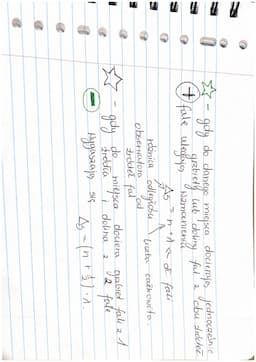 - gdy do danego miejsca docierają jednocześnie
grzbiety lub doliny fal z obu źródeł
+ fale ulegają wzmocnieniu
Δs = n · λ ← dł. fali
różnica odległości
obserwatora od
źródeł fal
liczba całkowita
- gdy do miejsca dociera grzbiet fali z 1
źródła i dolina z 2 fale
- wygaszają się
Δs = (n + ½) · λ